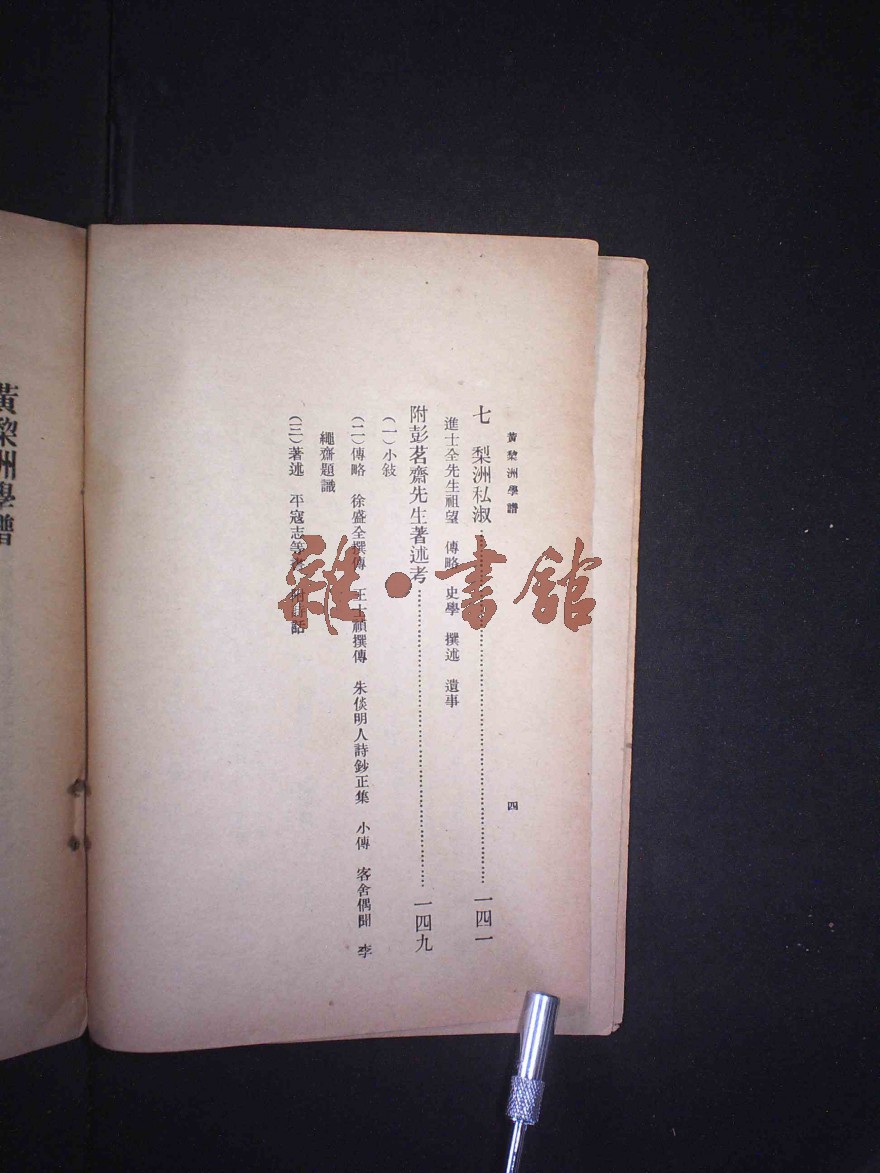 黃棃洲學譜
四
七　梨洲私淑……一四一
進士全先生祖望　傳略　史學　撰述　遺事
附彭茗齋先生著述考……一四九
（一）小敍
（二）傳略　徐盛全撰傳　王士禎撰傳　朱倓明人詩鈔正集　小傳　客舍偶聞　李
繩齋題識
（三）著述　平寇志等　附詩話
黃棃洲學譜
雜·書館